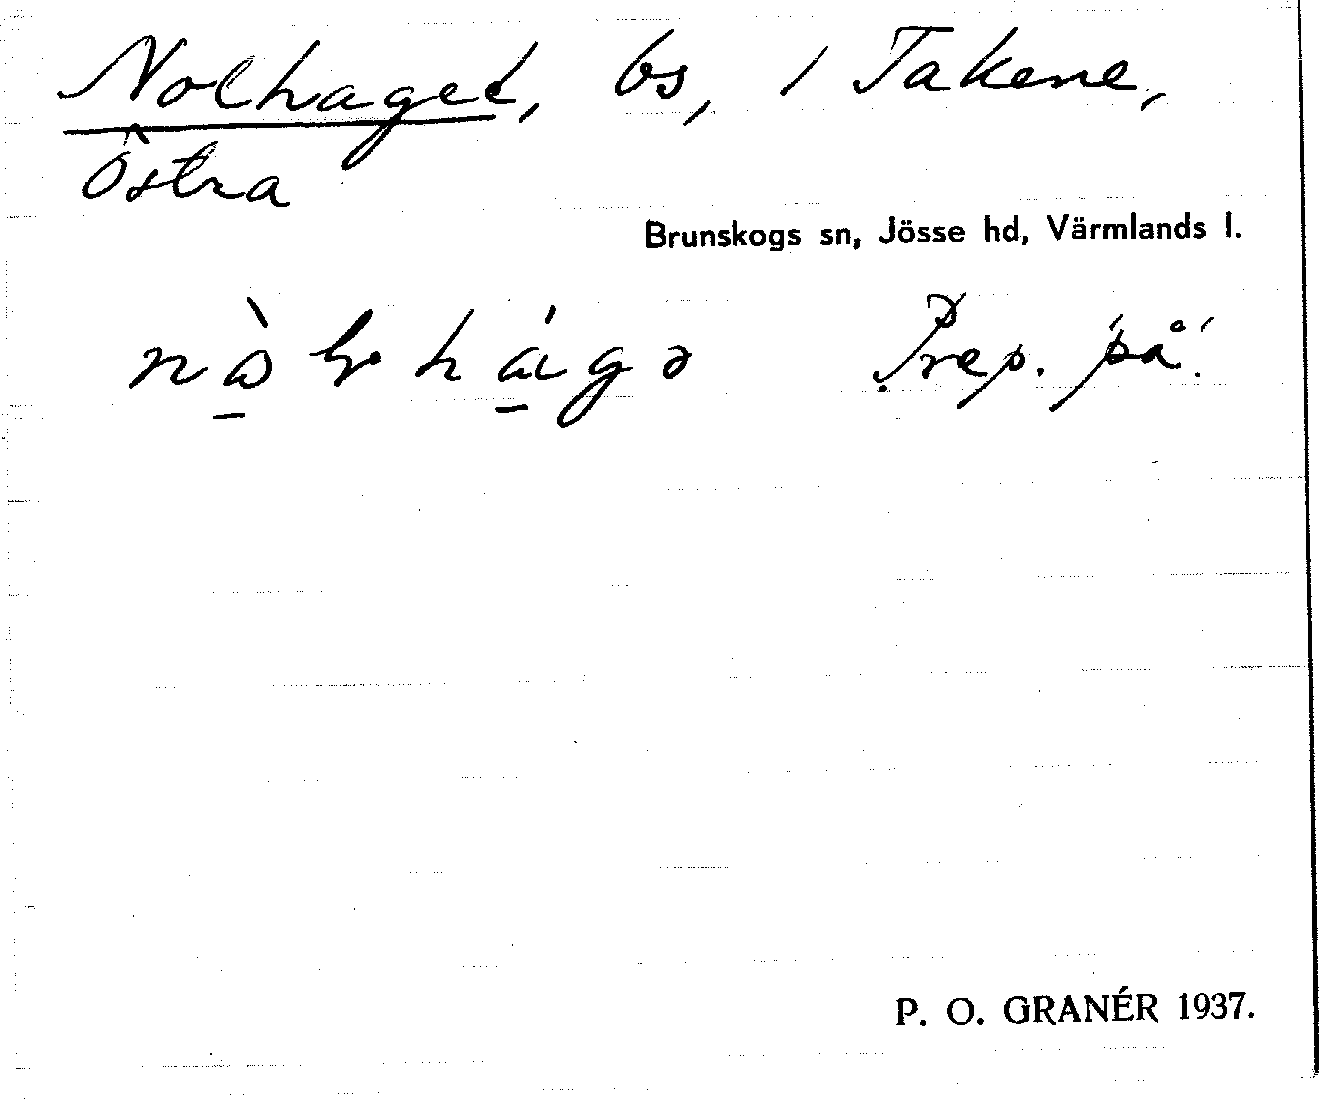 Nolhaget, bs, / Takene,
Östra
Brunskogs sn, Jösse hd, Värmlands l.
Prep. 'på'.
P. O. GRANÉR 1937.